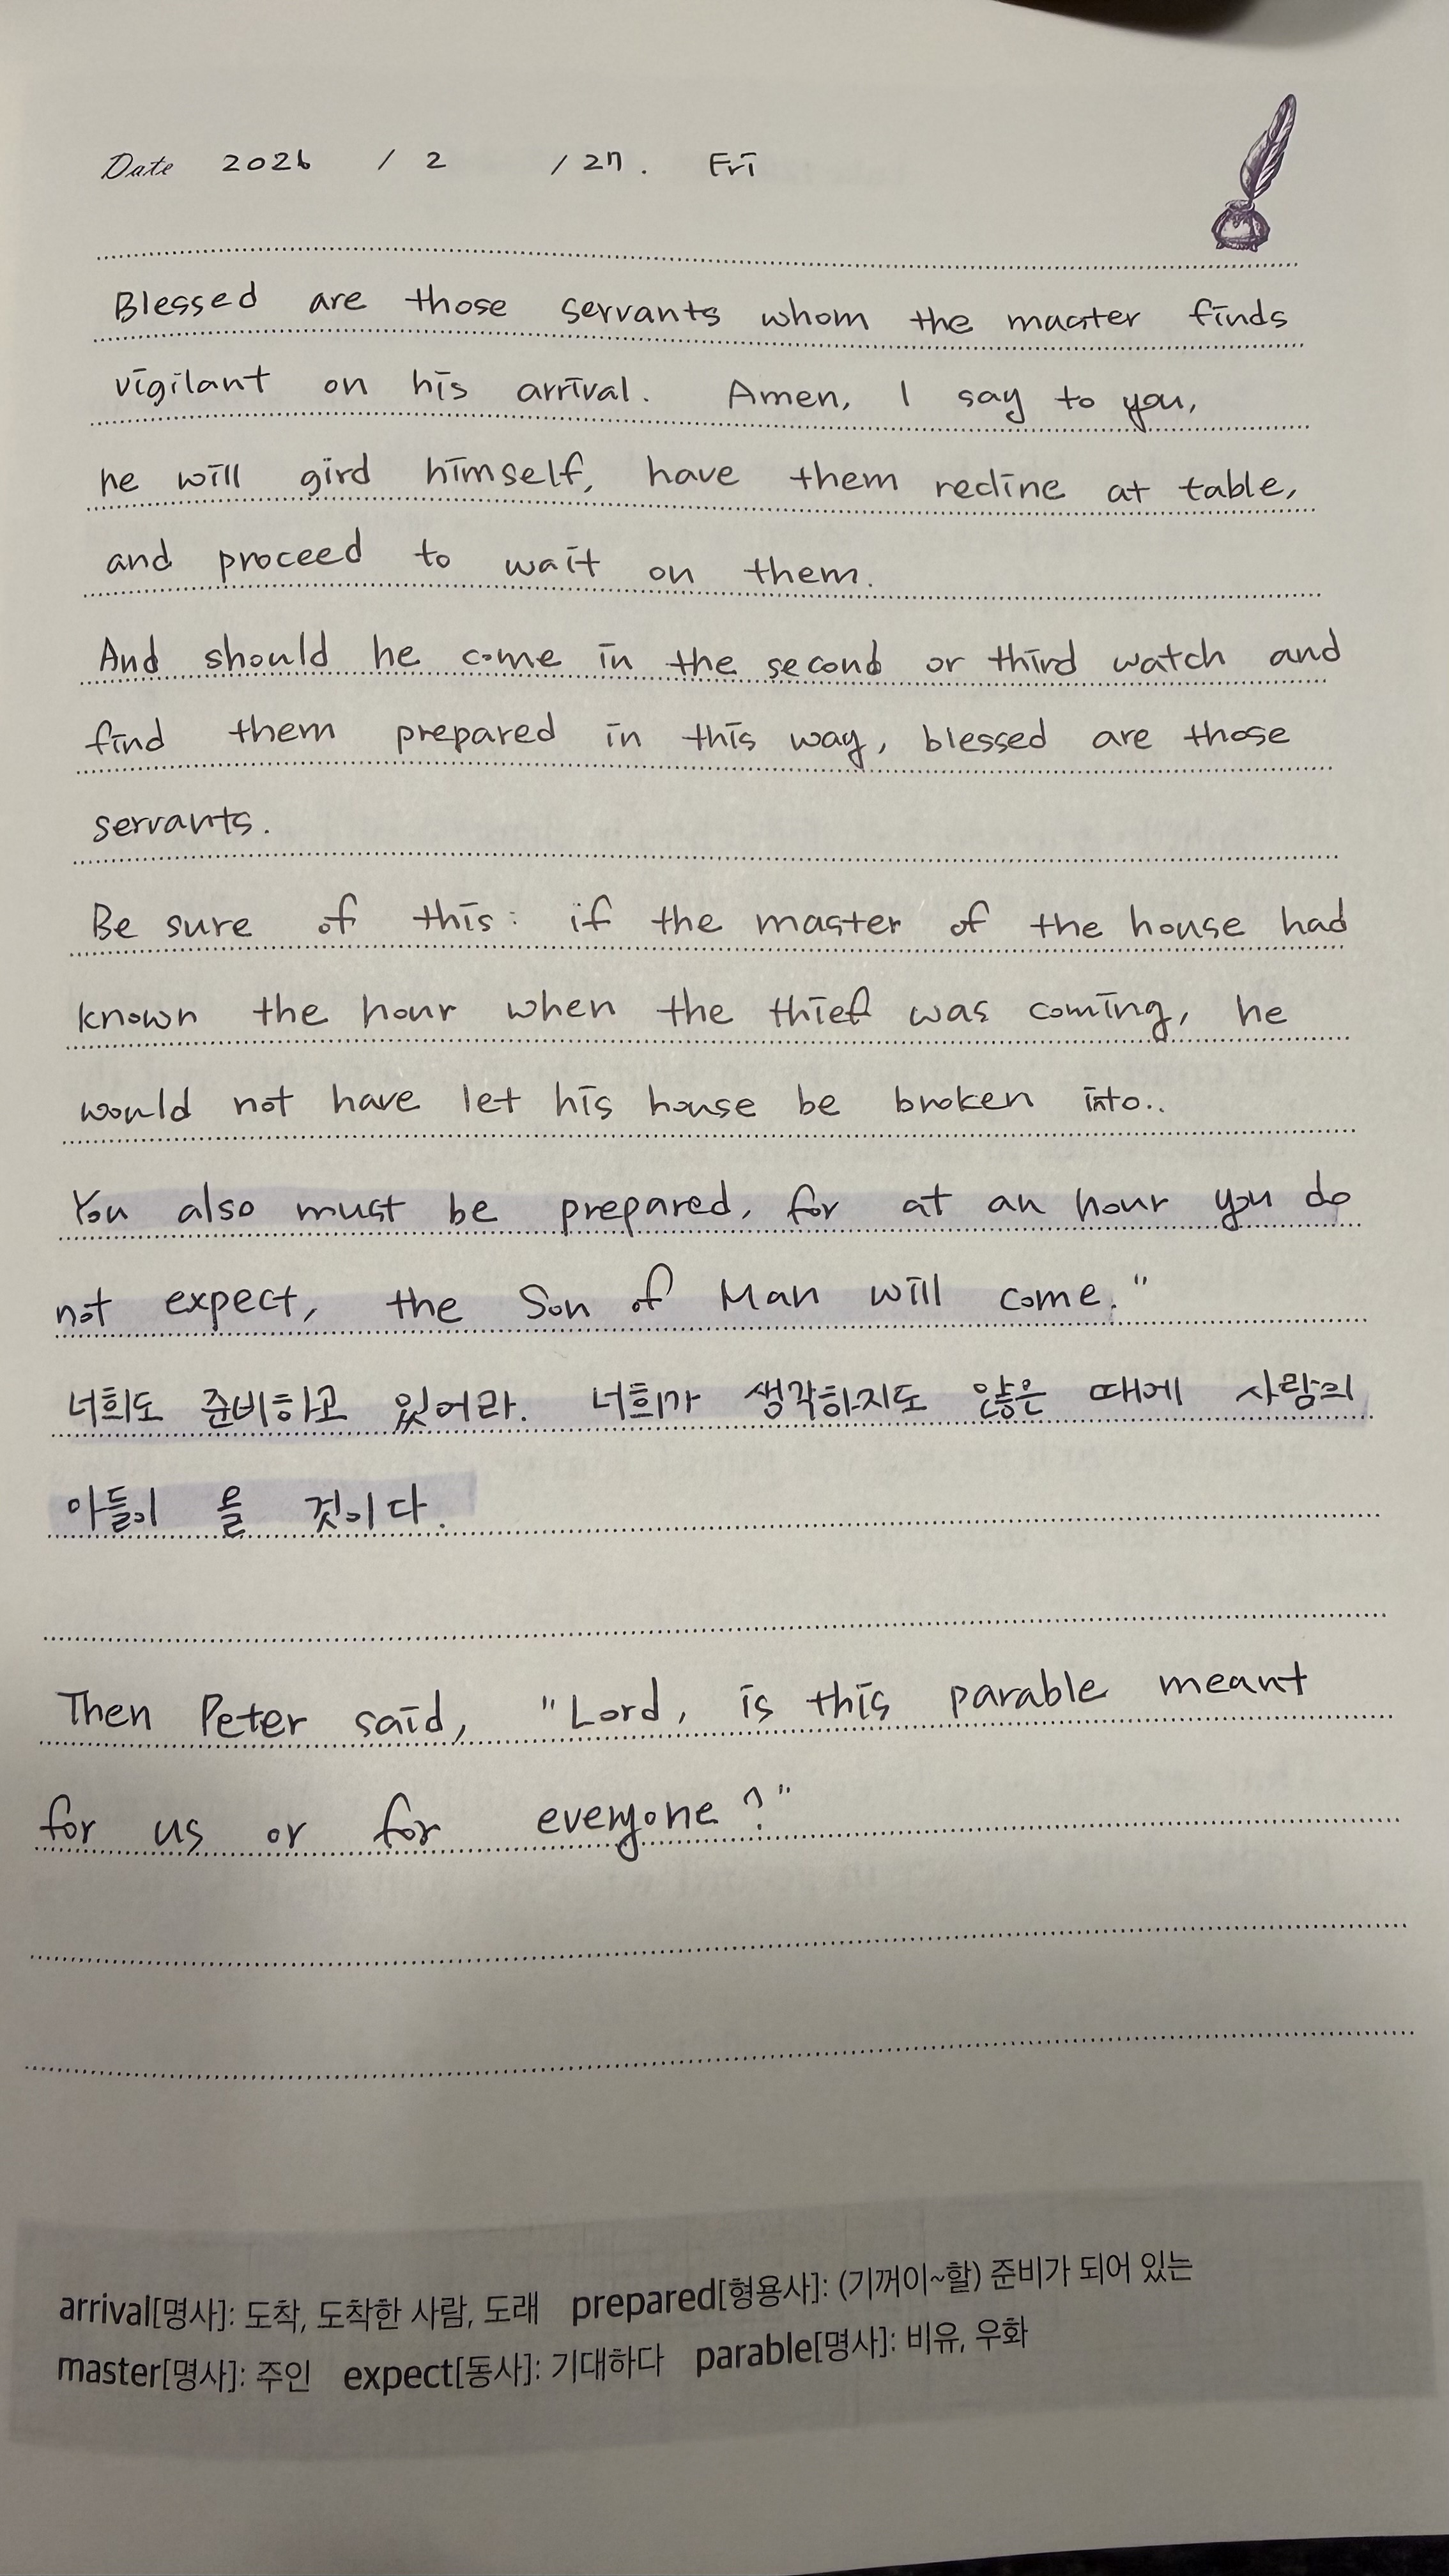 Date 2026 / 2 / 27. Fri
Blessed are those servants whom the master finds
vigilant on his arrival. Amen, I say to you,
he will gird himself, have them recline at table,
and proceed to wait on them.
And should he come in the second or third watch and
find them prepared in this way, blessed are those
servants.
Be sure of this: if the master of the house had
known the hour when the thief was coming, he
would not have let his house be broken into..
You also must be prepared, for at an hour you do
not expect, the Son of Man will come."
너희도 준비하고 있어라. 너희가 생각하지도 않은 때에 사람의
아들이 올 것이다.
Then Peter said, "Lord, is this parable meant
for us or for everyone?"
arrival[명사]: 도착, 도착한 사람, 도래 prepared[형용사]: (기꺼이~할) 준비가 되어 있는
master[명사]: 주인 expect[동사]: 기대하다 parable[명사]: 비유, 우화